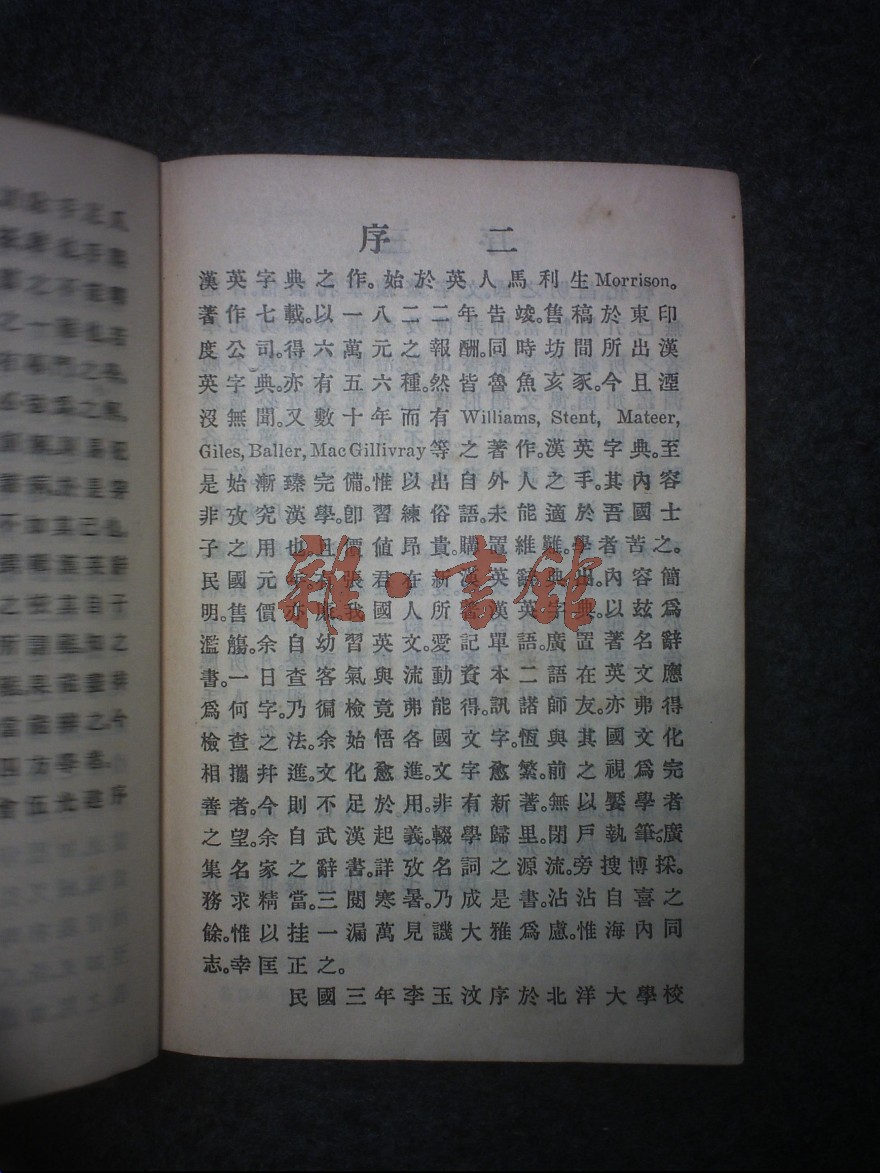 序二
漢英字典之作。始於英人馬利生Morrison。
著作七載。以一八二二年告竣。售稿於東印
度公司。得六萬元之報酬。同時坊間所出漢
英字典。亦有五六種。然皆魯魚亥豕。今且湮
沒無聞。又數十年而有 Williams, Stent, Mateer,
Giles, Baller, Mac Gillivray等之著作。漢英字典。至
是始漸臻完備。惟以出自外人之手。其內容
非攷究漢學。卽習練俗語。未能適於吾國士
子之用也。且價値昂貴。購置維難。學者苦之。
民國元年。有張君在新漢英辭典出。內容簡
明。售價亦廉。我國人所著漢英字典。以玆爲
濫觴。余自幼習英文。愛記單語。廣置著名辭
書。一日查客氣與流動資本二語在英文應
爲何字。乃徧檢竟弗能得。訊諸師友。亦弗得
檢查之法。余始悟各國文字。恆與其國文化
相攜幷進。文化愈進。文字愈繁。前之視爲完
善者。今則不足於用。非有新著。無以饜學者
之望。余自武漢起義。輟學歸里。閉戶執筆。廣
集名家之辭書。詳攷名詞之源流。旁搜博採。
務求精當。三閱寒暑。乃成是書。沾沾自喜之
餘。惟以挂一漏萬見譏大雅爲慮。惟海內同
志。幸匡正之。
民國三年李玉汶序於北洋大學校
雜·書館